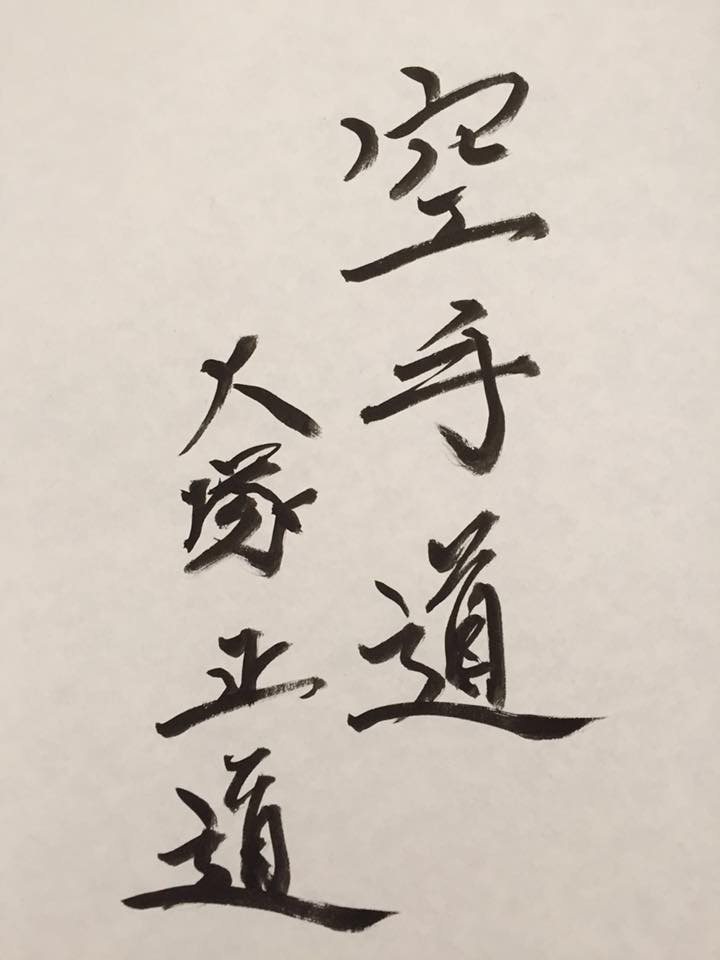 空手道
大塚正道